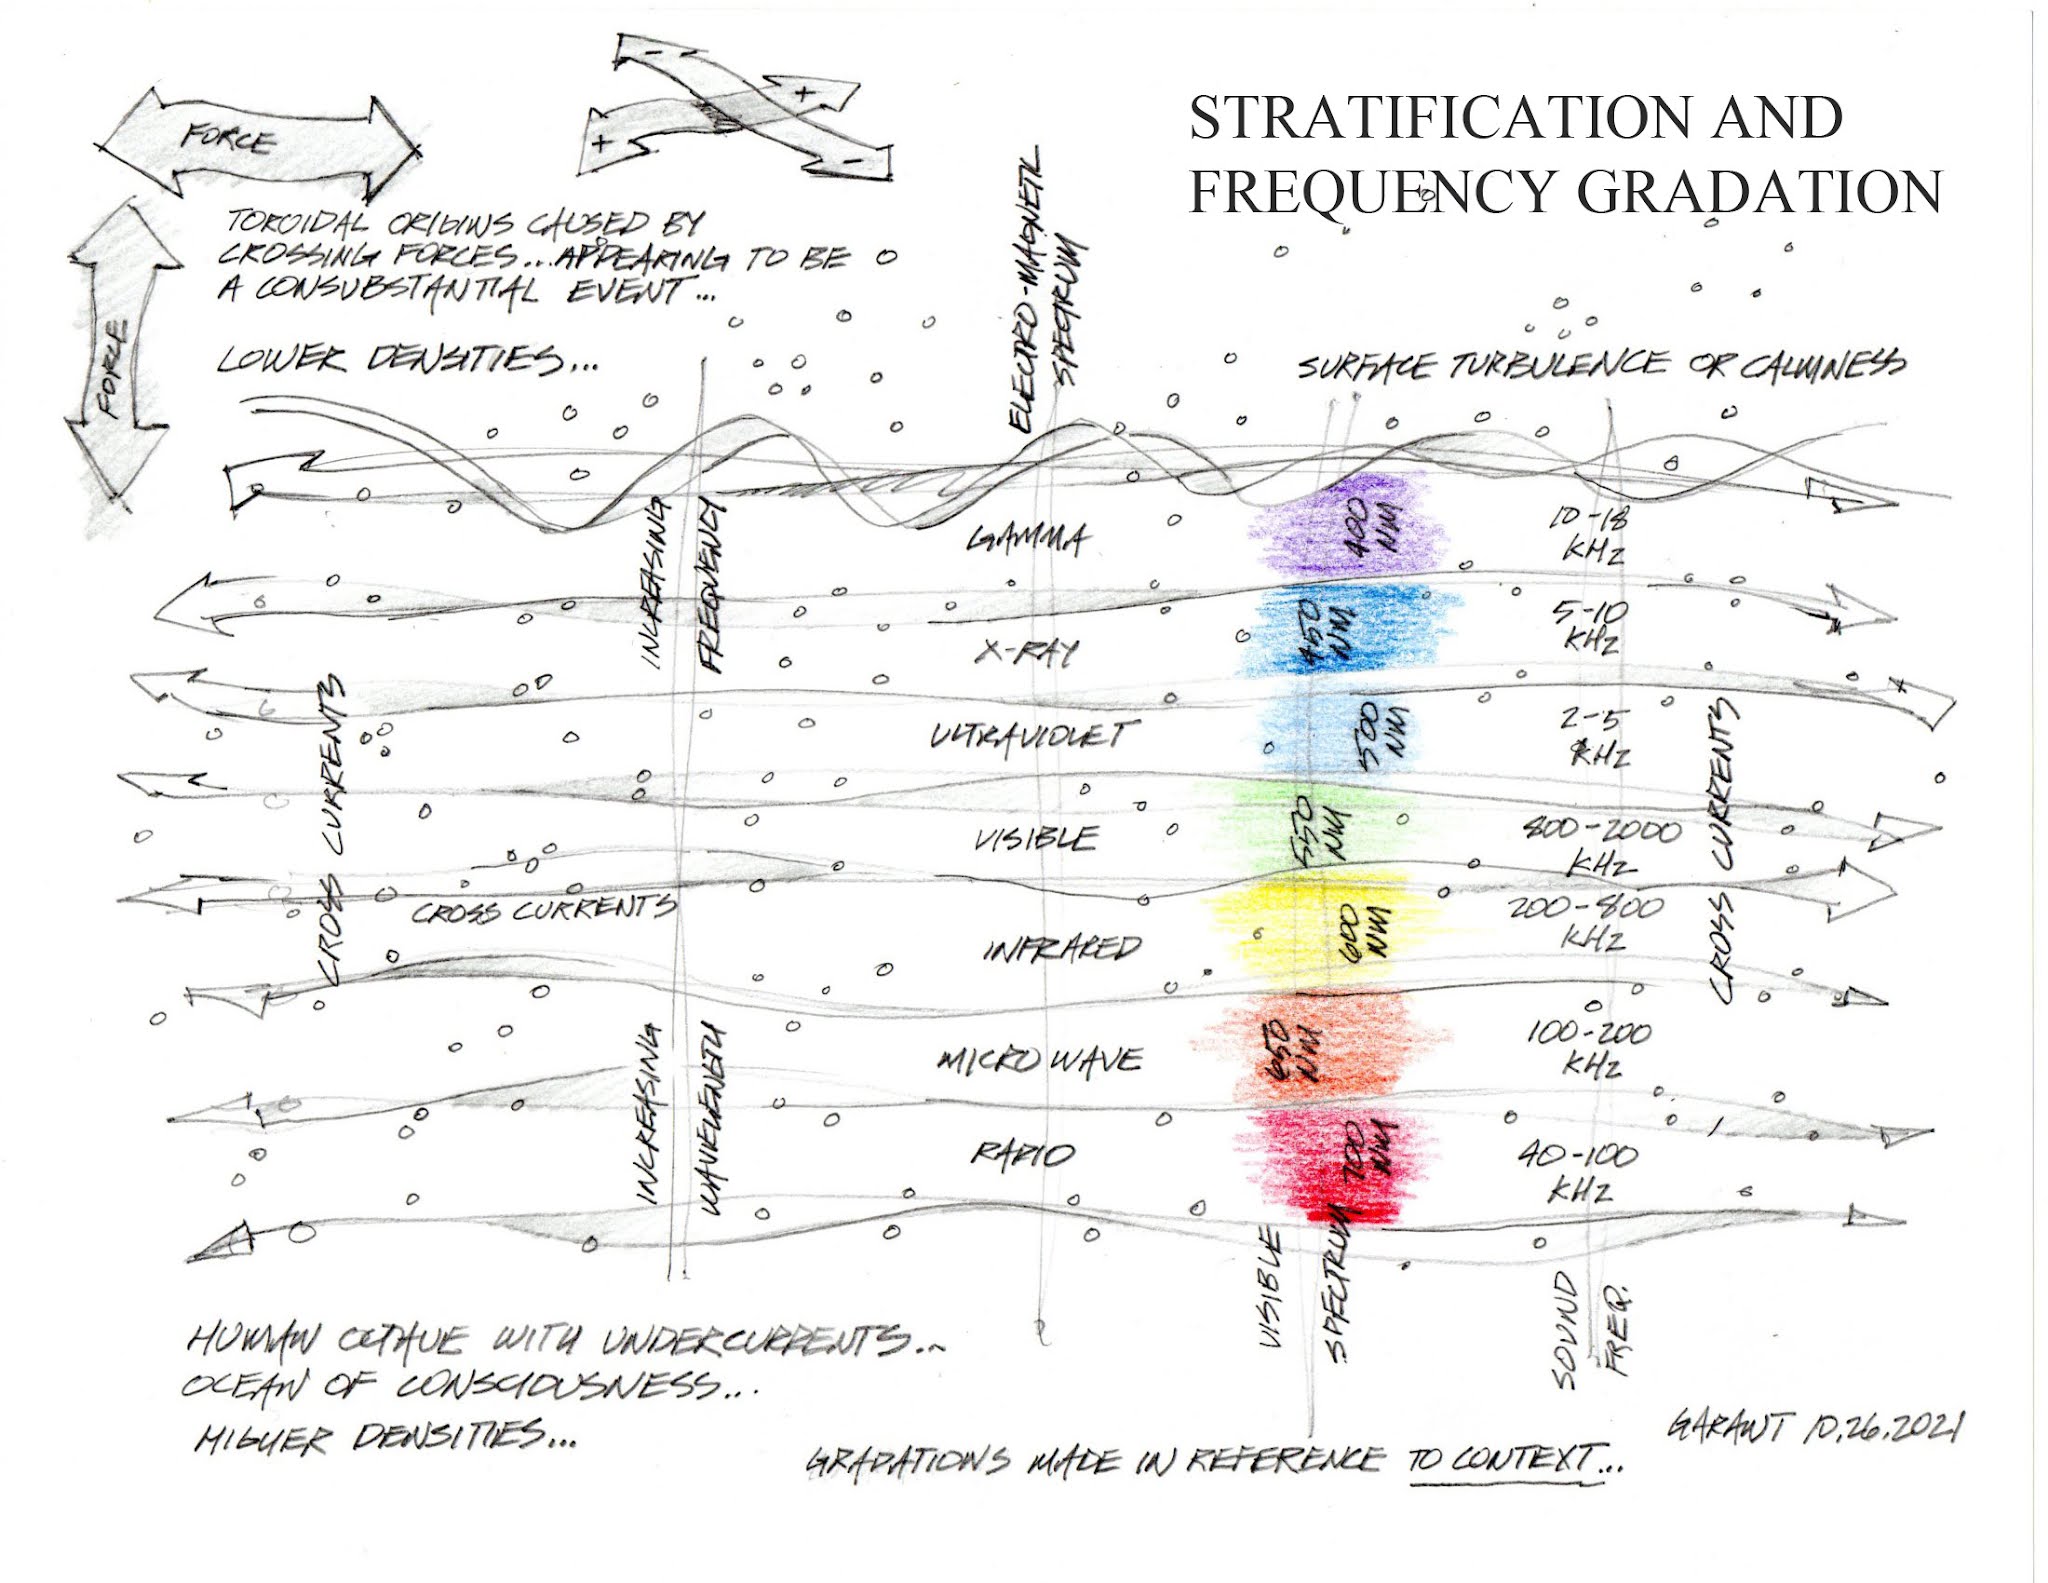 STRATIFICATION AND
FREQUENCY GRADATION
FORCE
FORCE
- +
+ -
TOROIDAL ORIGINS CAUSED BY
CROSSING FORCES...APPEARING TO BE
A CONSUBSTANTIAL EVENT...
LOWER DENSITIES...
ELECTRO-MAGNETIC
SPECTRUM
SURFACE TURBULENCE OR CALMNESS
INCREASING
FREQUENCY
GAMMA
400
NM
10-18
KHz
X-RAY
450
NM
5-10
KHz
CROSS CURRENTS
ULTRAVIOLET
500
NM
2-5
KHz
CROSS CURRENTS
VISIBLE
550
NM
800-2000
KHz
CROSS CURRENTS
INFRARED
600
NM
200-800
KHz
INCREASING
WAVELENGTH
MICRO WAVE
650
NM
100-200
KHz
RADIO
700
NM
40-100
KHz
VISIBLE
SPECTRUM
SOUND
FREQ.
HUMAN OCTAVE WITH UNDERCURRENTS...
OCEAN OF CONSCIOUSNESS...
HIGHER DENSITIES...
GRADATIONS MADE IN REFERENCE TO CONTEXT...
GARANT 10.26.2021